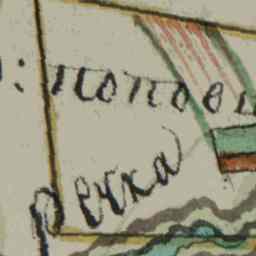 : попов
речка